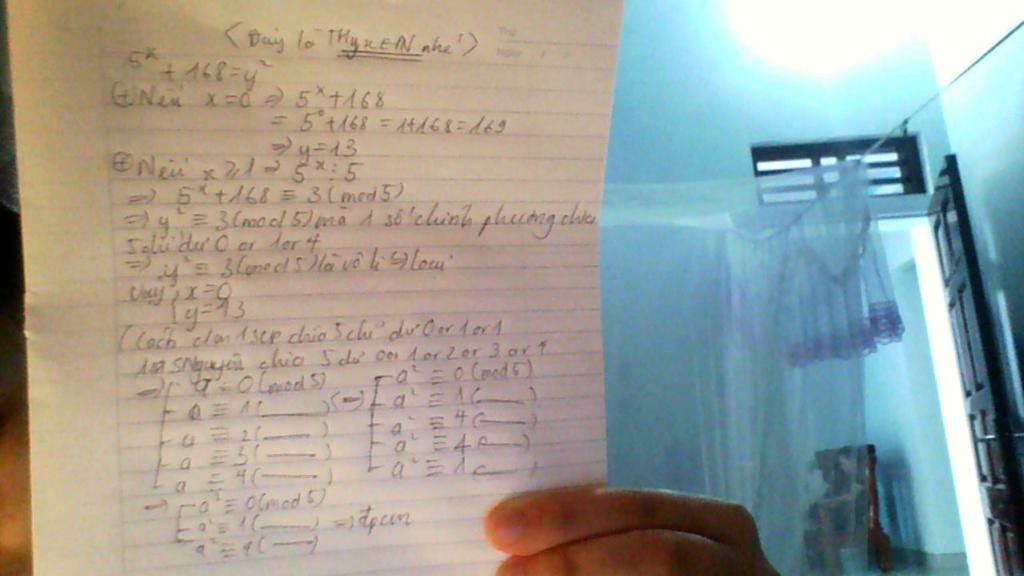 (Đây là TH y,x∈ℕ nhé!)
5^x + 168 = y²
⊕ Nếu x=0 ⇒ 5^x+168
= 5^0+168 = 1+168=169
⇒ y=13
⊕ Nếu x≥1 ⇒ 5^x ⋮ 5
⇒ 5^x+168 ≡ 3 (mod 5)
⇒ y² ≡ 3 (mod 5) mà 1 số chính phương chia
5 chỉ dư 0 or 1 or 4
⇒ y² ≡ 3 (mod 5) là vô lí ⇒ loại
Vậy { x=0
y=13
(Cách c/m 1 SCP chia 5 chỉ dư 0 or 1 or
1 số nguyên chia 5 dư 0 or 1 or 2 or 3 or 4
⇒ [ a ≡ 0 (mod 5) ⇔ [ a² ≡ 0 (mod 5)
a ≡ 1 (——) a² ≡ 1 (——)
a ≡ 2 (——) a² ≡ 4 (——)
a ≡ 3 (——) a² ≡ 4 (——)
a ≡ 4 (——) a² ≡ 1 (——)
⇒ [ a² ≡ 0 (mod 5)
a² ≡ 1 (——) ⇒ đpcm
a² ≡ 4 (——)